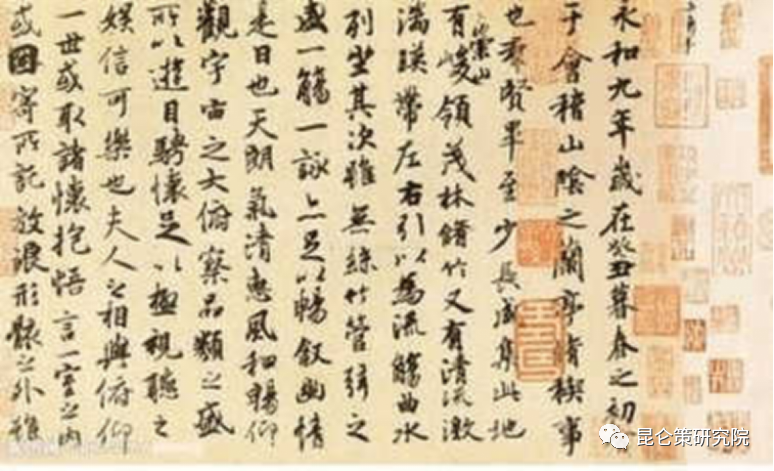 永和九年歲在癸丑暮春之初
于會稽山陰之蘭亭脩稧事
也羣賢畢至少長咸集此地
有崇山峻領茂林脩竹又有清流激
湍暎帶左右引以為流觴曲水
列坐其次雖無絲竹管弦之
盛一觴一詠亦足以暢敘幽情
是日也天朗氣清惠風和暢仰
觀宇宙之大俯察品類之盛
所以遊目騁懷足以極視聽之
娛信可樂也夫人之相與俯仰
一世或取諸懷抱悟言一室之內
或因寄所託放浪形骸之外雖
昆仑策研究院